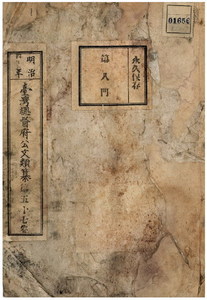 01656
永久保存
第八門
明治
年
臺灣總督府公文類纂